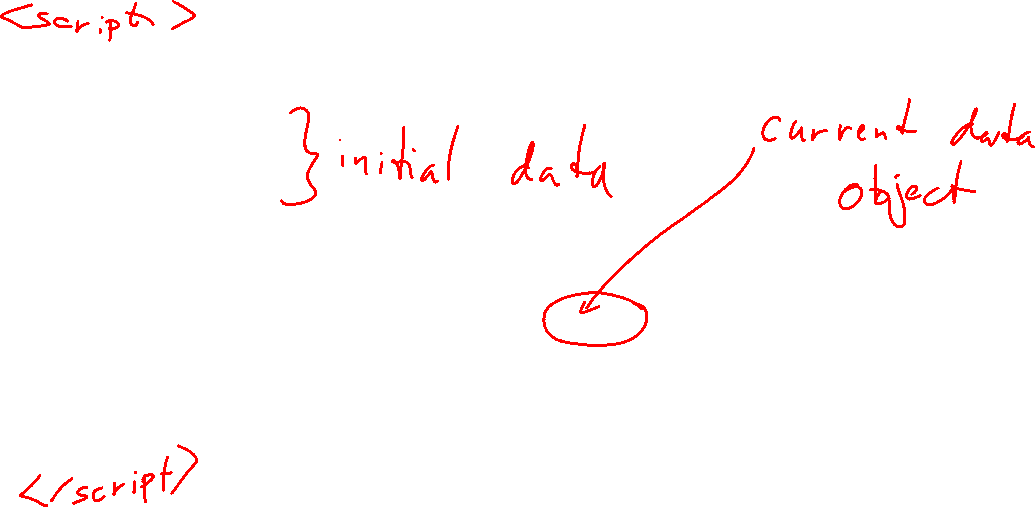 <script>
} initial data
current data
object
</script>